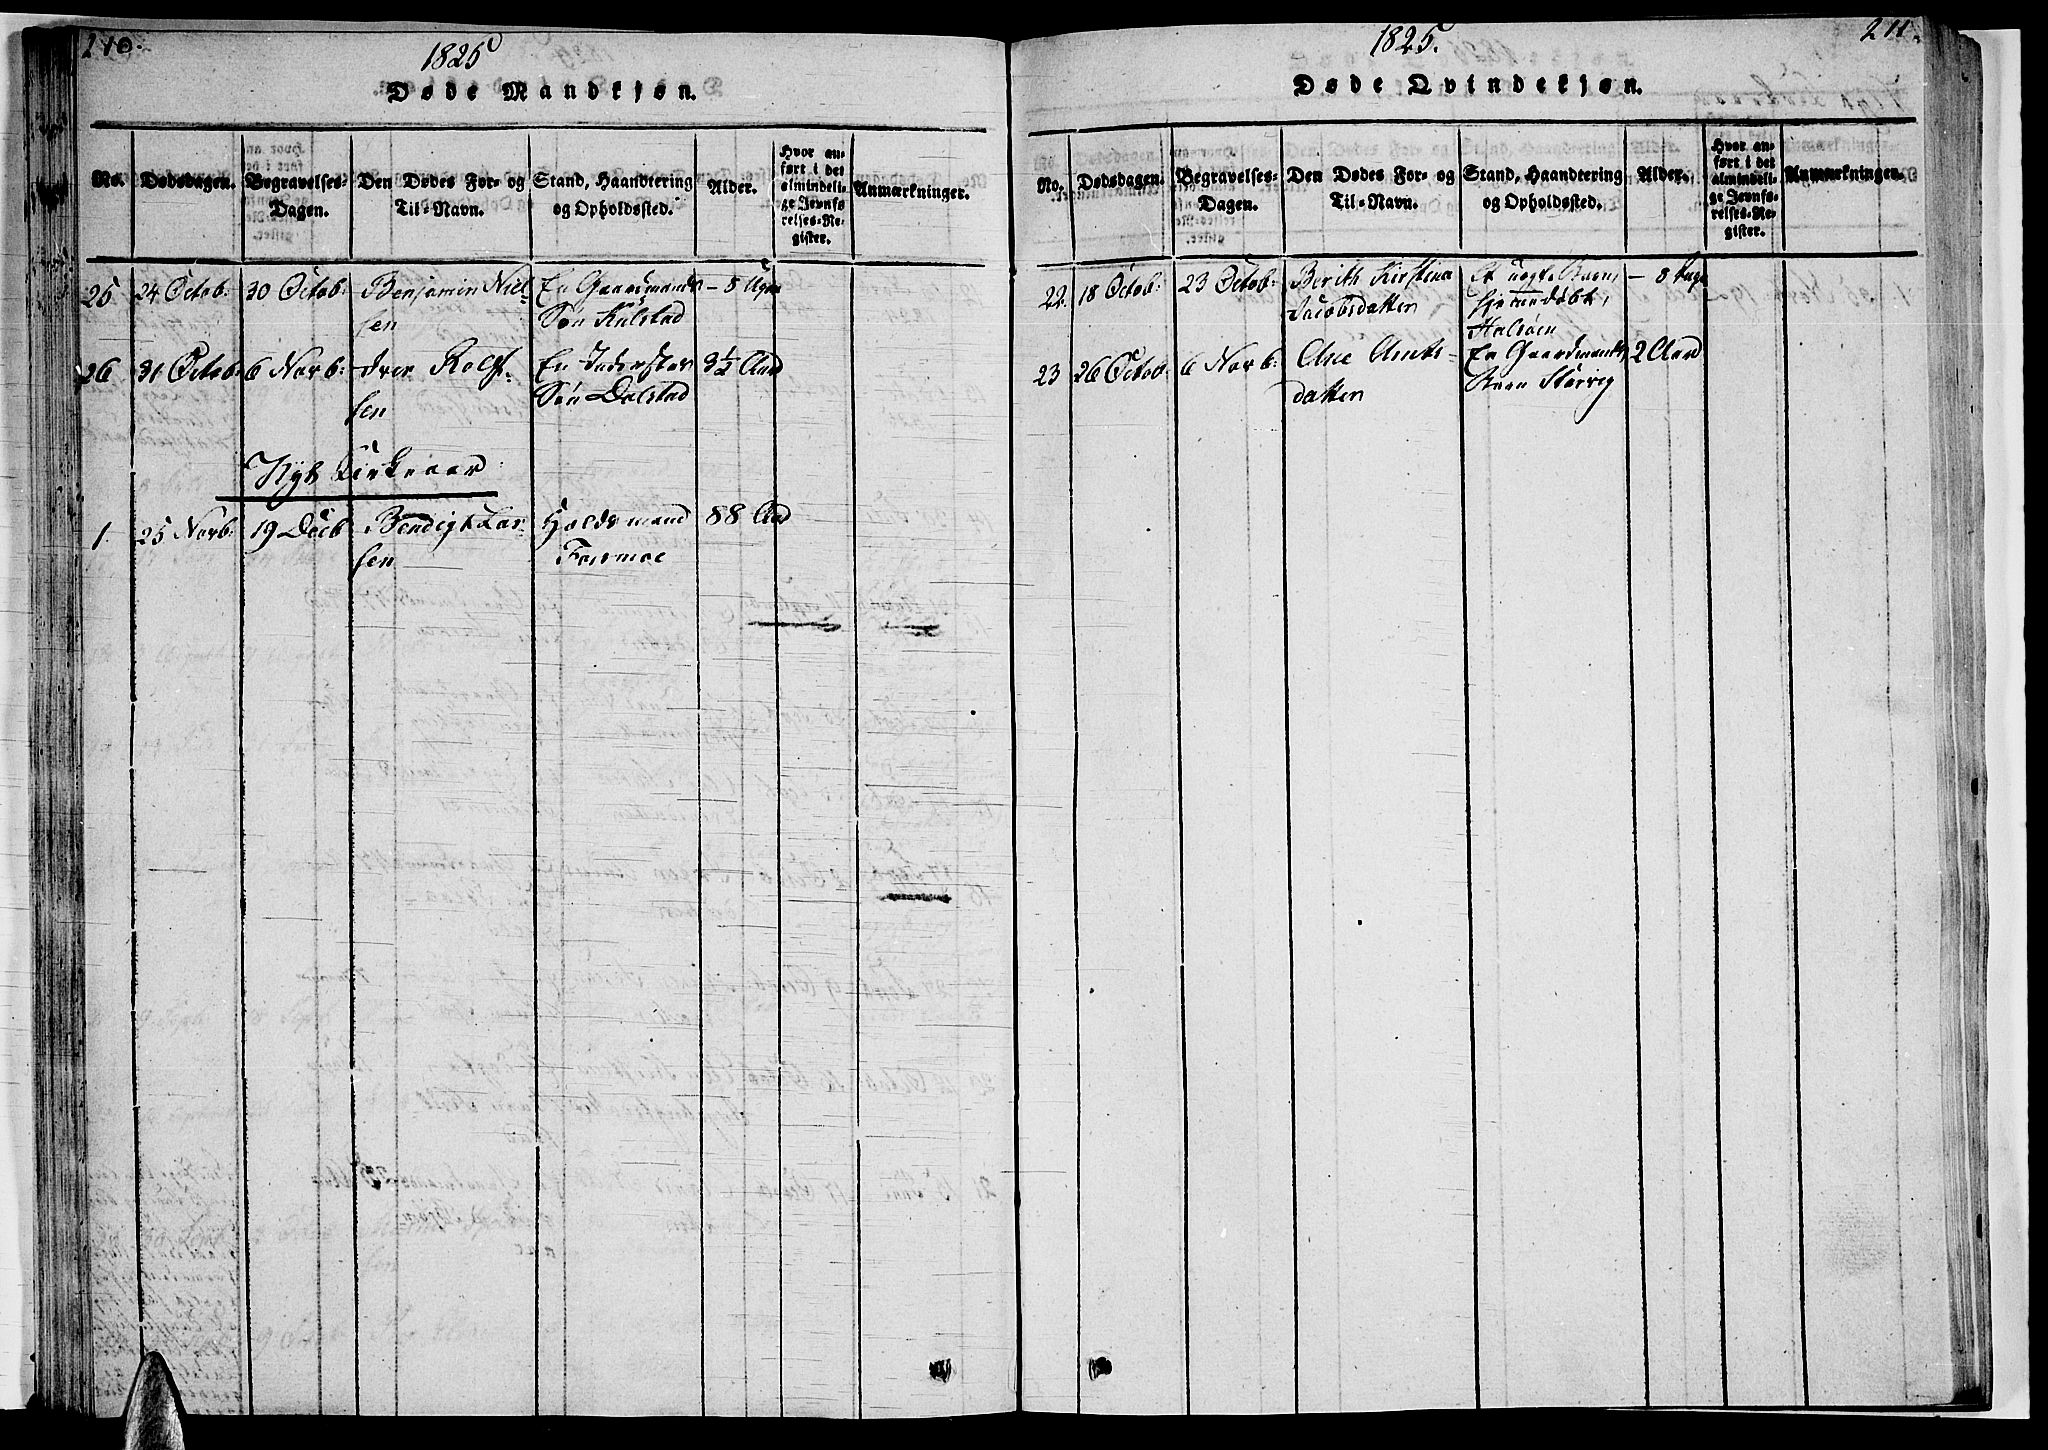 210.
1825
Døde Mandkjøn.
No.
Dødsdagen.
Begravelses-
Dagen.
Den Dødes For- og
Til-Navn.
Stand, Haandtering
og Opholdssted.
Alder.
Hvor an-
ført i det
almindeli-
ge Jevnfø-
relses-Re-
gister.
Anmærkninger.
25
24 Octob:
30 Octob:
Benjamin Niel-
sen
En Gaardmands
Søn Kulstad
- 8 Uger
26
31 Octob:
6 Novb:
Iver Rolf-
sen
En Inderster
Søn Dalstad
3½ Aar
Nyt Kirkeaar
1.
25 Novb:
19 Decb
Bendigt Lar-
sen
Holdsmand
Forsmoe
88 Aar
1825.
211.
Døde Qvindekjøn.
No.
Dødsdagen.
Begravelses-
Dagen.
Den Dødes For- og
Til-Navn.
Stand, Haandtering
og Opholdssted.
Alder.
Hvor an-
ført i det
almindeli-
ge Jevnfø-
relses-Re-
gister.
Anmærkningen.
22.
18 Octob:
23 Octob:
Berith Kirstina
Jacobsdatter
Et uegte Barn,
hjemmedøbt,
Halsøen
- 8 Dage
23
26 Octob:
6 Novb:
Ane Amts-
datter
En Gaardmands
Barn Størvig
2 Aar